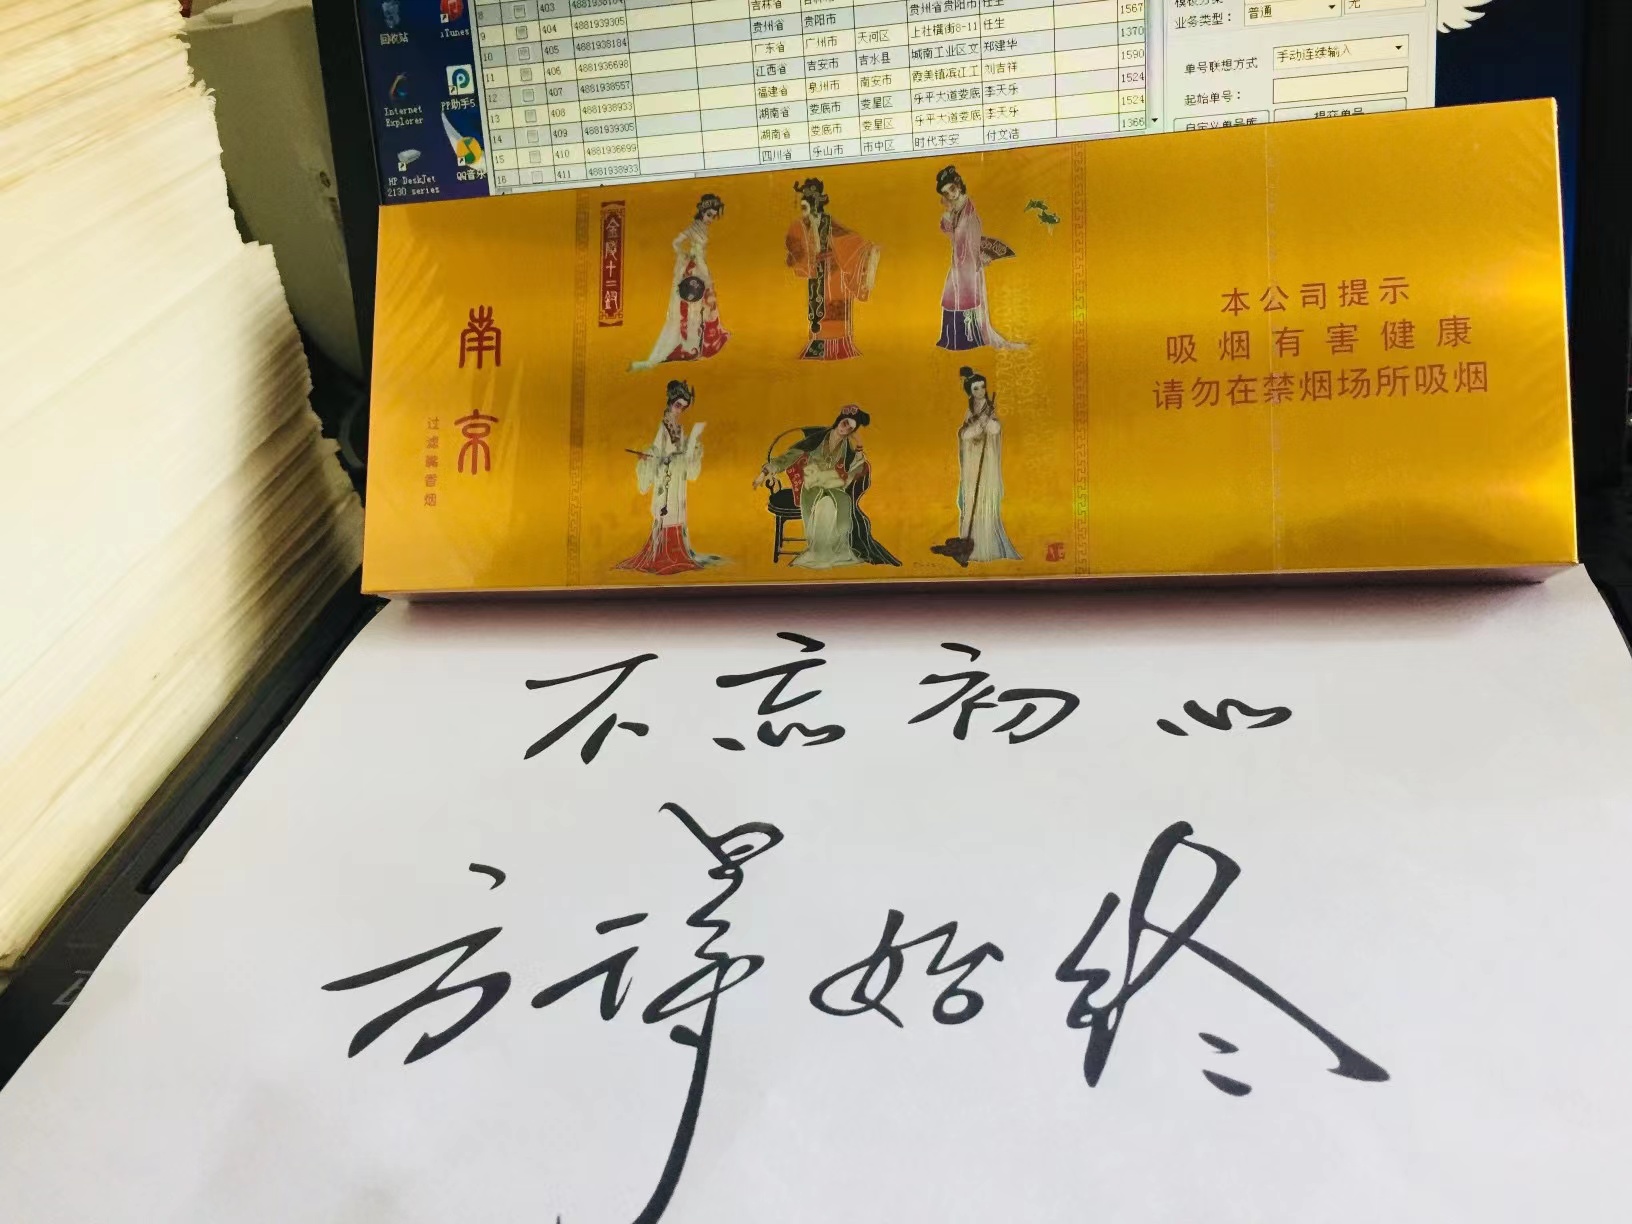 回收站
iTunes
Internet
Explorer
PP助手5
HP DeskJet
2130 series
QQ音乐
8 403 4881938184 吉林省
9 404 4881939305 贵州省 贵阳市 贵州省贵阳市 任生 1567
10 405 4881938184 广东省 广州市 天河区 上社横街8-11 任生 1370
11 406 4881936698 江西省 吉安市 吉水县 城南工业区文 郑建华 1590
12 407 4881938557 福建省 泉州市 南安市 霞美镇滨江工 刘吉祥 1524
13 408 4881938933 湖南省 娄底市 娄星区 乐平大道娄底 李天乐 1524
14 409 4881939305 湖南省 娄底市 娄星区 乐平大道娄底 李天乐 1366
15 410 4881936699 四川省 乐山市 市中区 时代东安 付文浩
16 411 4881938933
业务类型： 普通 无
单号联想方式 手动连续输入
起始单号：
自定义单号库 提交单号
南京
过滤嘴香烟
金陵十二钗
本公司提示
吸烟有害健康
请勿在禁烟场所吸烟
不忘初心
方得始终